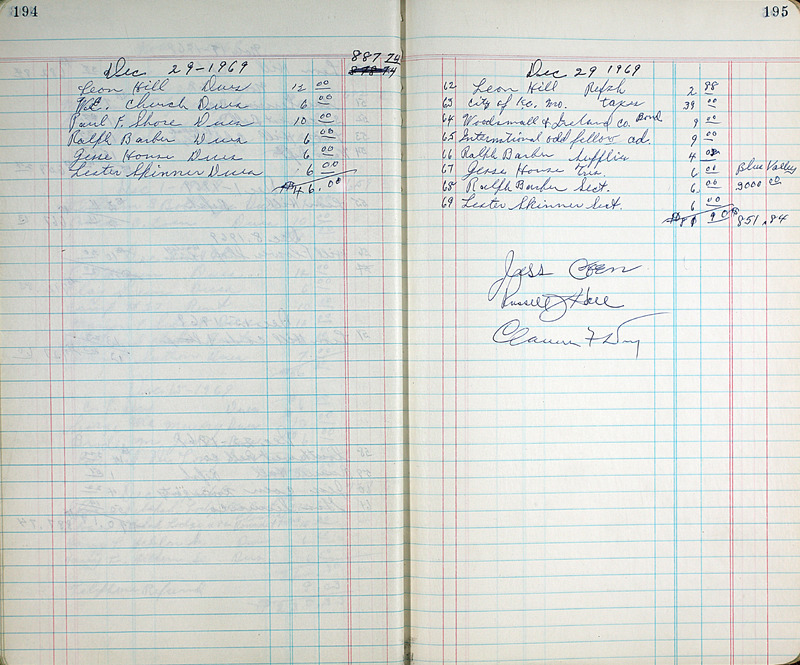 194
887 74
Dec 29-1969
Leon Hill Dues 12 00
W.E. Church Dues 6 00
Paul F. Shore Dues 10 00
Ralph Barber Dues 6 00
Gene House Dues 6 00
Lester Skinner Dues 6 00
$46.00
195
Dec 29 1969
62 Leon Hill Refsh 2 98
63 City of Ko. Mo. taxes 39 00
64 Woodsmall & Ireland Co. Bond 9 00
65 International odd fellow ad. 9 00
66 Ralph Barber Supplies 4
67 Gene House Trea. 6 00 Blue Valley
68 Ralph Barber Sect. 6 00 3000 00
69 Lester Skinner Sect. 6 00
851.94
Russell Hall